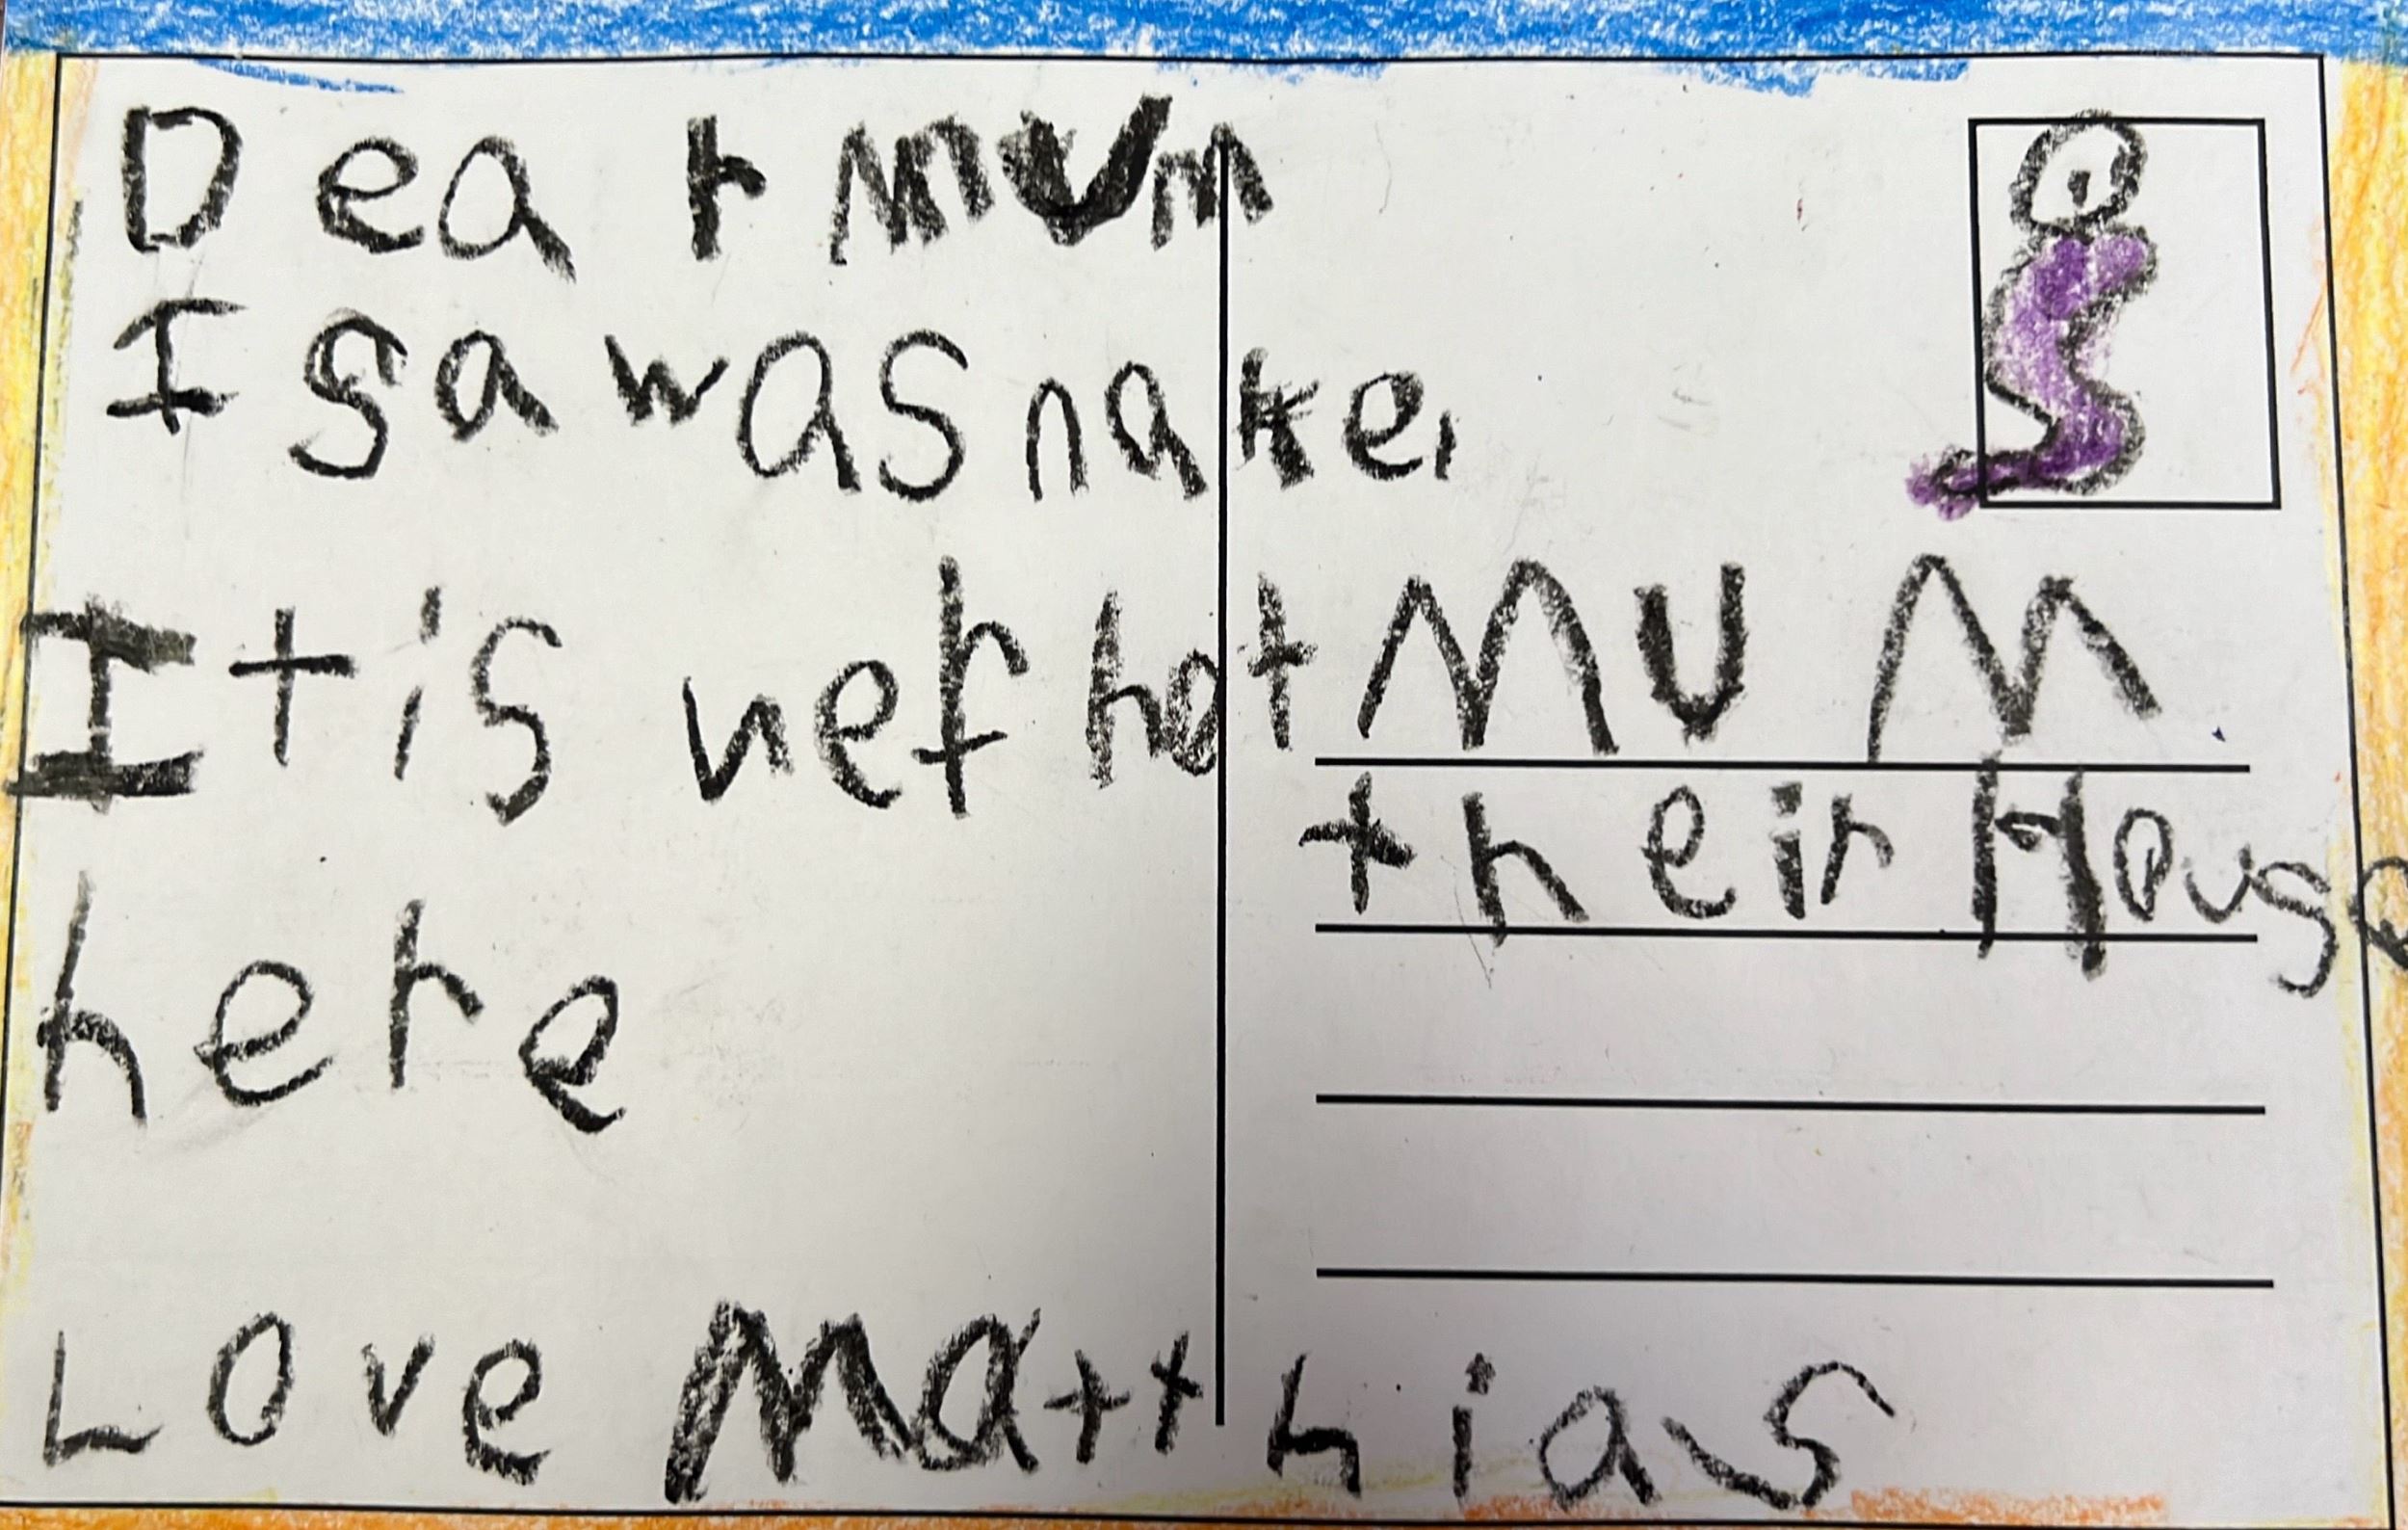 Dear mum
I saw a snake.
It is hot
here
Love Matthias
MUM
their House